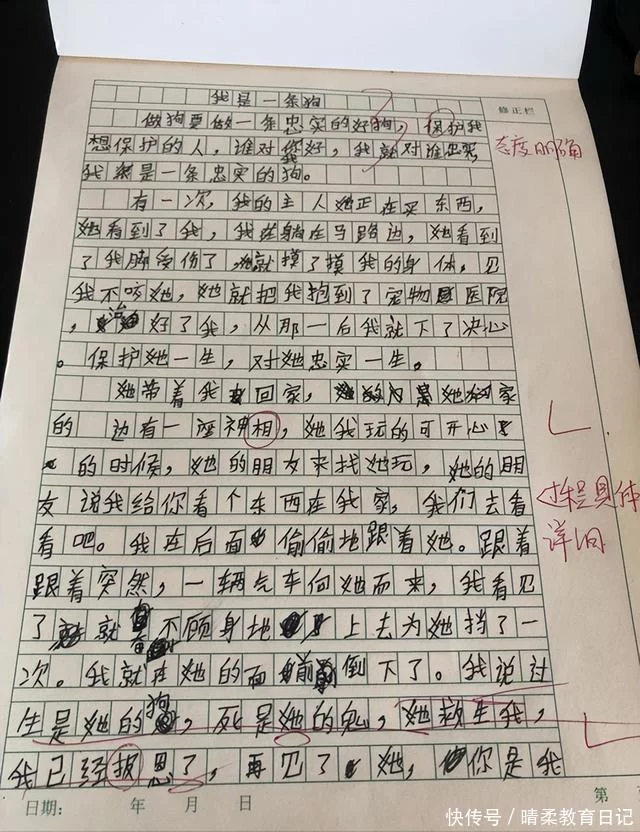 我是一条狗
修正栏
做狗要做一条忠实的好狗，保护我
想保护的人，谁对我好，我就对谁忠实
态度明确
我是一条忠实的狗。
有一次，我的主人她正在买东西，
她看到了我，我在躺在马路边，她看到
了我脚受伤了她就摸了摸我的身体，见
我不咬她，她就把我抱到了宠物医院
，治好了我，从那一后我就下了决心
。保护她一生，对她忠实一生。
她带着我回家，她家
的边有一座神相，她我玩的可开心
的时候，她的朋友来找她玩，她的朋
友说我给你看个东西在我家，我们去看
过程具体
看吧。我在后面偷偷地跟着她。跟着
详细
跟着突然，一辆气车向她而来，我看见
了就不顾身地上去为她挡了一
次。我就在她的面前倒下了。我说过
生是她的狗，死是她的鬼，她救生我，
我已经报恩了，再见了她，你是我
日期： 年 月 日
第
快传号/晴柔教育日记